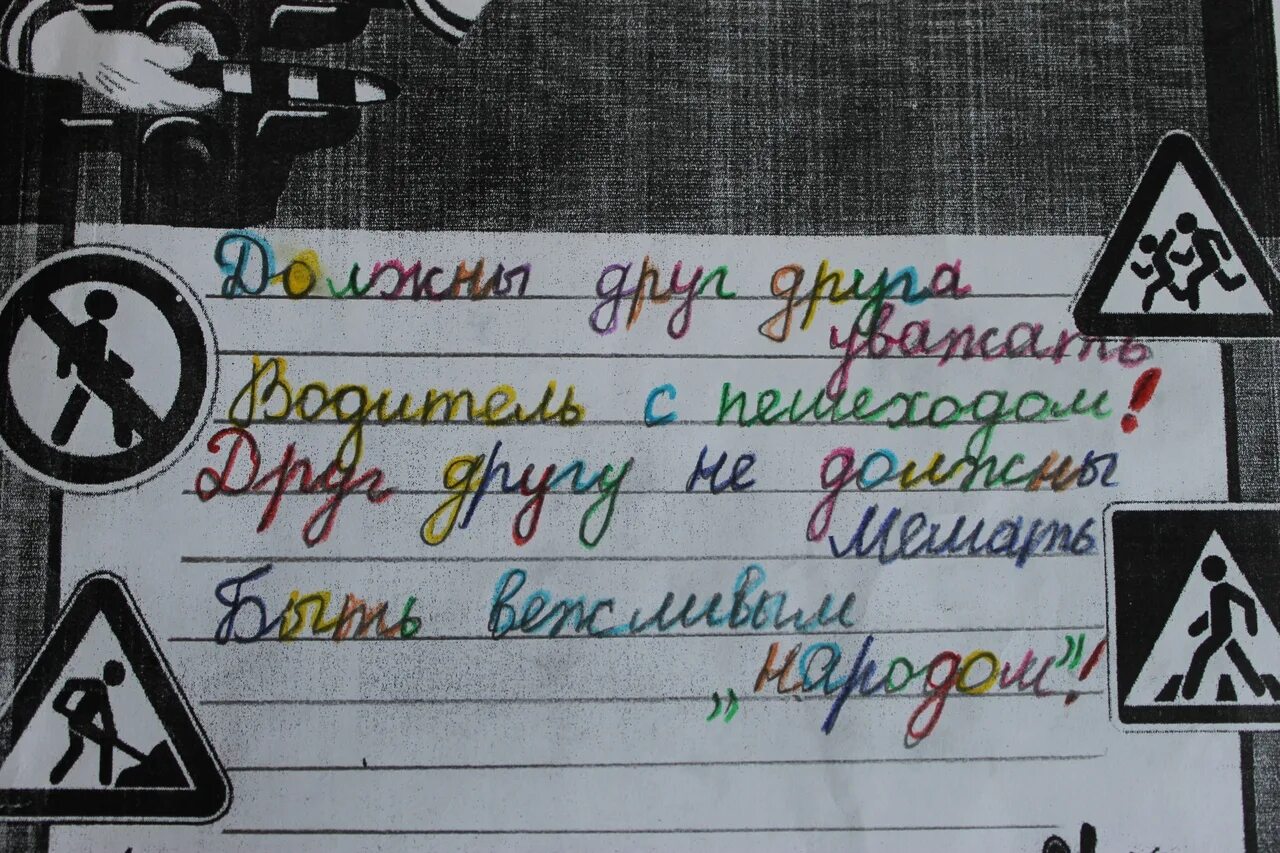 Должны друг друга
уважать
Водитель с пешеходом!
Друг другу не должны
мешать
Быть вежливым
„народом”!